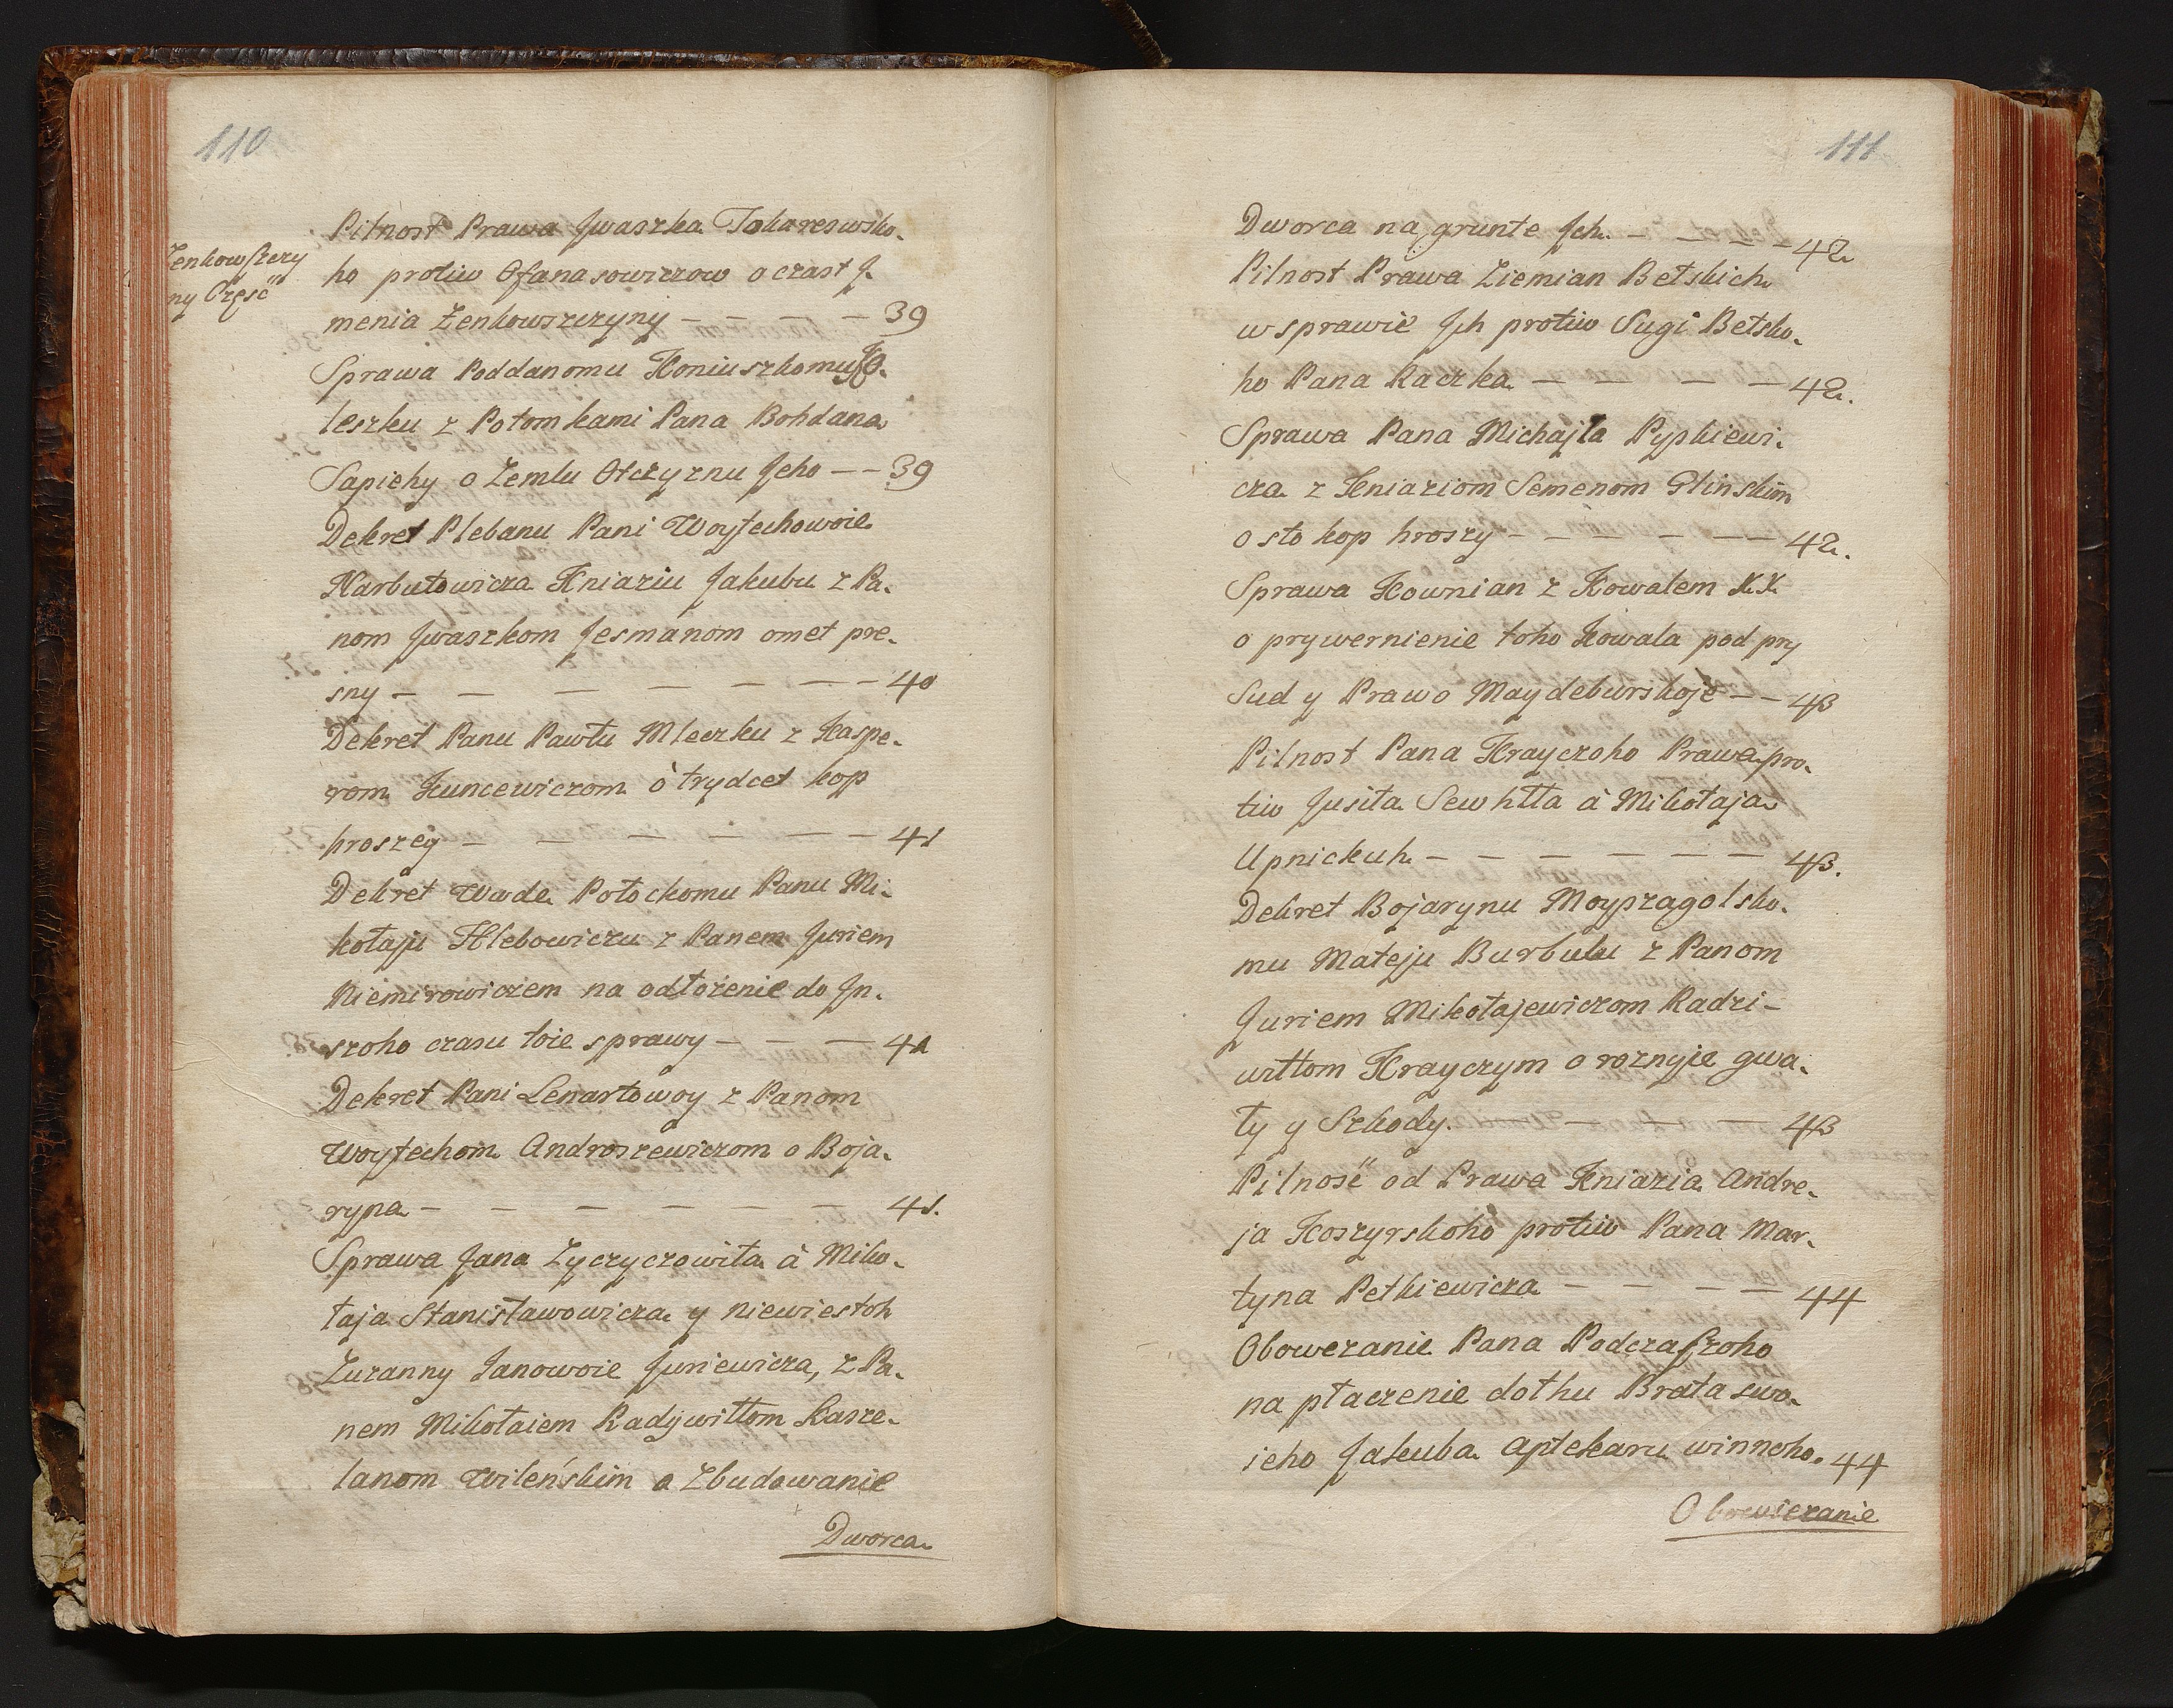 110
Pilnost Prawa Jwaszka Tokarewsko-
Zenkowszczy
ny Częsc
ho protiw Ofanasowiczow o czast J-
menia Zenkowszczyny - - - - - 39
Sprawa Poddanomu Koniuszkomu Jo-
leszku z Potomkami Pana Bohdana
Sapiehy o Zemlu Otczyznu Jeho - - 39
Dekret Plebanu Pani Woytechowoie
Narbutowicza Kniaziu Jakubu z Pa-
nom Jwaszkom Jesmanom omet pre-
sny - - - - - - - 40
Dekret Panu Pawłu Mleczku z Kaspe-
rom Kuncewiczom o trydcet kop
hroszey - - - - - - 41
Dekret Wwde Połockomu Panu Mi-
kołaju Hlebowiczu z Panem Juriem
Niemirowiczem na odłożenie do Jn-
szoho czasu toie sprawy - - - 41
Dekret Pani Lenartowoy z Panom
Woytechom Androszewiczom o Boja-
ryna - - - - - - - 41.
Sprawa Jana Zyczyczowiła à Miko-
łaja Stanisławowicza y niewiestoh
Zuzanny Janowoie Juriewicza, z Pa-
nem Mikołaiem Radywiłłom Kasze-
lanom Wileńskim o Zbudowanie
Dworca
111
Dworca na grunte Jch - - - - 42
Pilnost Prawa Ziemian Betskich
w sprawie Jch protiw Sugi Betsko-
ho Pana Raczka - - - - 42.
Sprawa Pana Michajla Pypkiewi-
cza z Kniaziom Semenom Glinskim
o sto kop hroszy - - - - - - 42.
Sprawa Kownian z Kowalem K.K.
o prywernienie toho Kowala pod pry
Sud y Prawo Maydeburskoje - - 43
Pilnost Pana Krayczoho Prawa pro-
tiw Jusiła Sewhtła à Mikołaja
Upnickuh - - - - - - 43.
Dekret Bojarynu Moyszagolsko-
mu Mateju Burbulu z Panom
Juriem Mikołajewiczom Radzi-
wiłłom Krayczym o roznyje gwa-
ły y Szkody. - - - - 43
Pilnosć od Prawa Kniazia Andre-
ja Koszyrskoho protiw Pana Mar-
tyna Petkiewicza - - - - 44
Obowezanie Pana Podczaszoho
na płaczenie dołhu Brata swo-
ieho Jakuba Aptekaru winnoho. 44
Obowiezanie